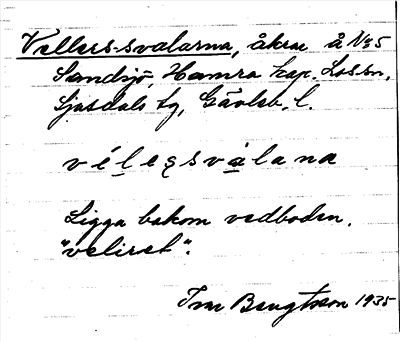 Vellers-svalarna, åkrar å No 5
Sandsjö, Hamra kap. Los sn,
Ljusdals tg, Gävleb. l.
vélęsvàlana
Ligga bakom vedboden,
"veliret".
Ivar Bengtsson 1935